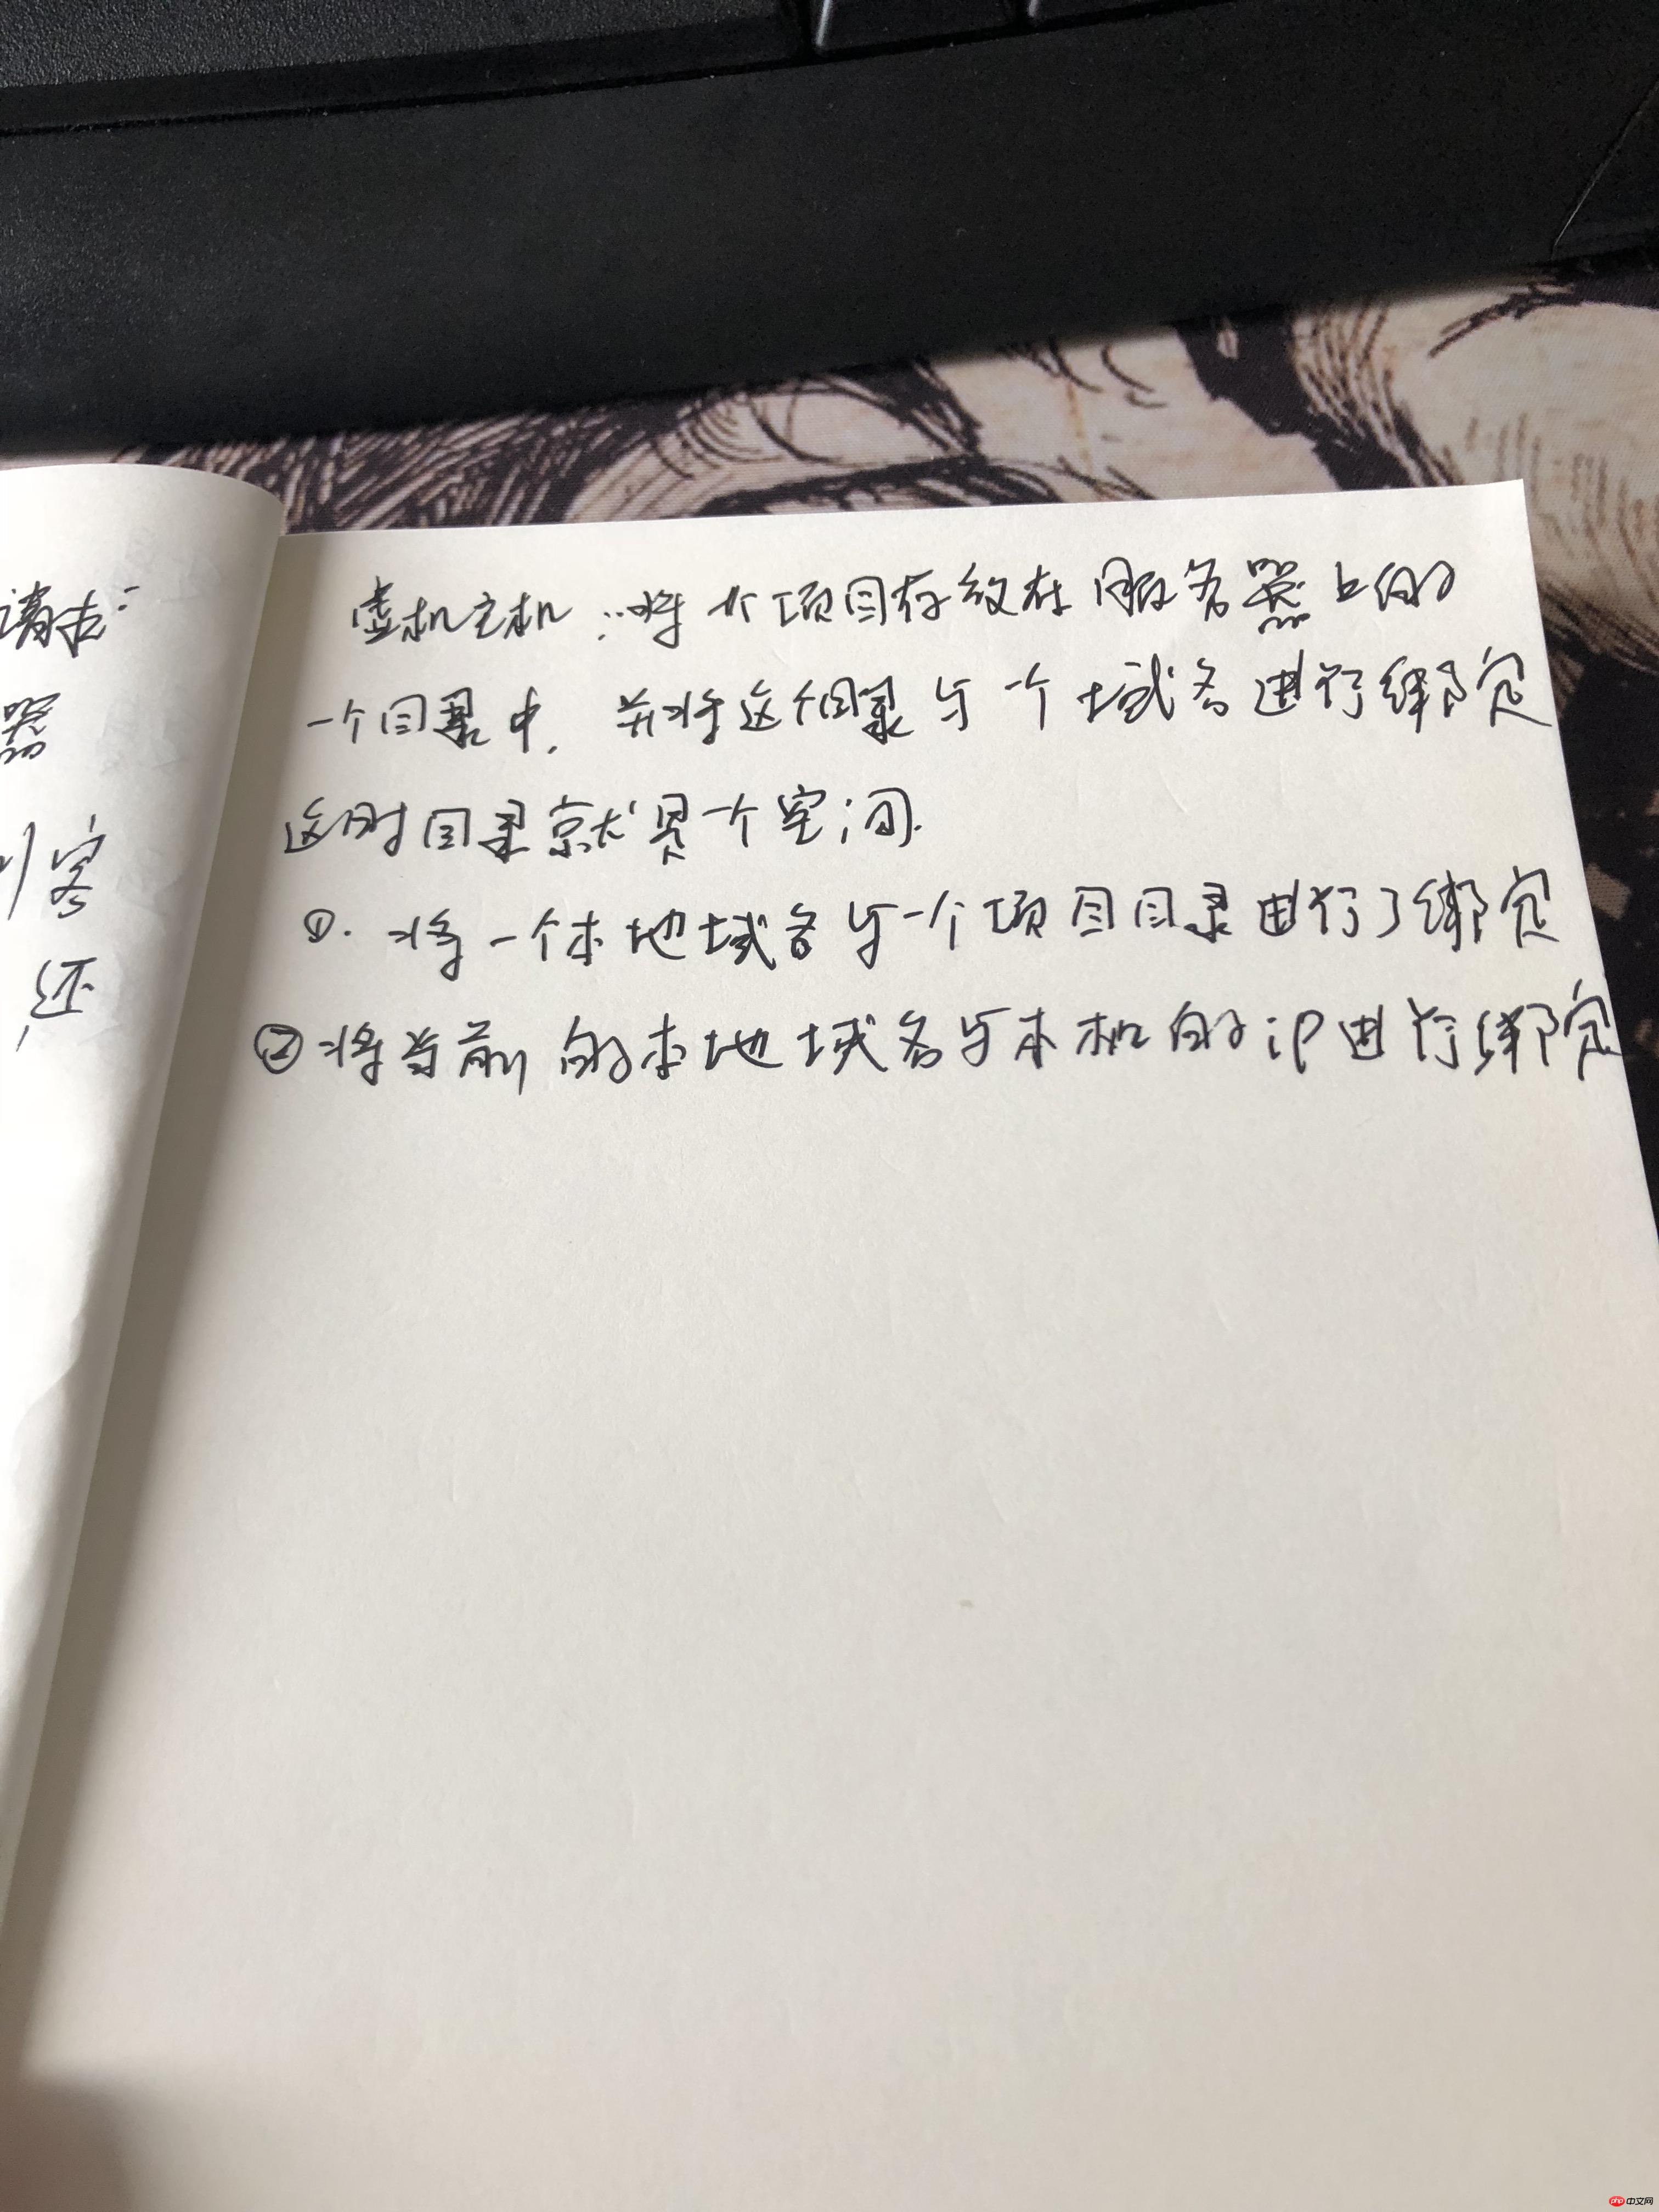 请求:
器
客
还
虚机主机:将个项目存放在服务器上的
一个目录中,并将这个目录与一个域名进行绑定
这时目录就是一个空间.
①.将一个本地域名与一个项目目录进行了绑定
②将当前的本地域名与本机的ip进行绑定
php中文网